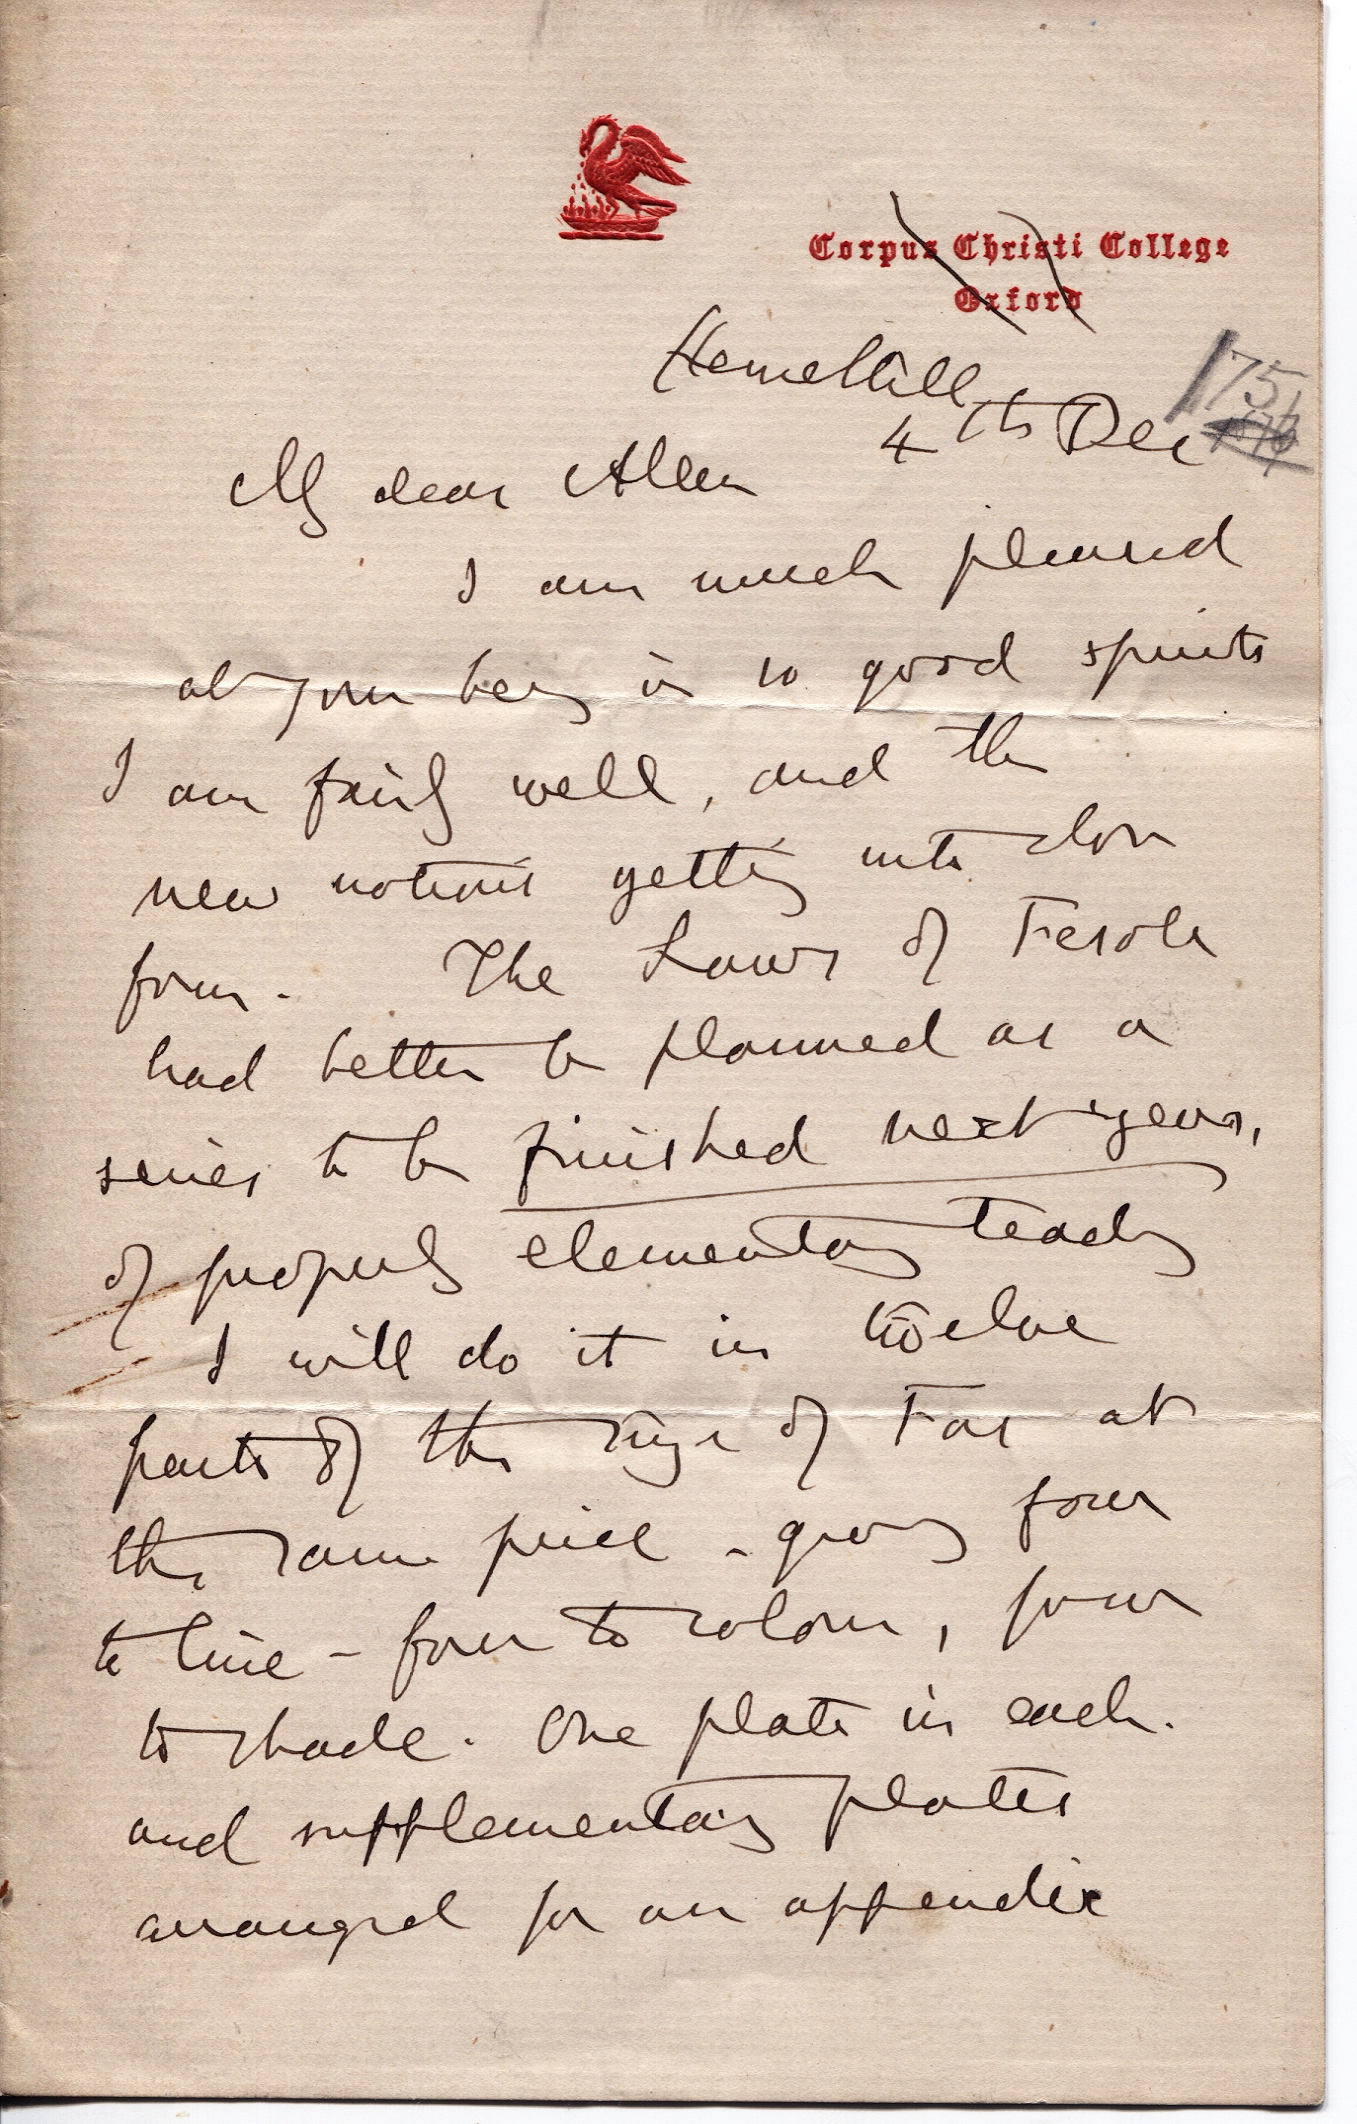 Corpus Christi College
Oxford
Herne Hill
4th Dec
75
My dear Allen
I am much pleased
at your being in so good spirits
I am fairly well, and the
new notions getting into clear
form. The Laws of Fesole
had better be planned as a
series to be finished next year,
of properly elementary teaching
I will do it in twelve
parts of the size of Fors at
the same price - giving four
to line - four to colour, four
to shade. One plate in each.
and supplementary plates
arranged for an appendix